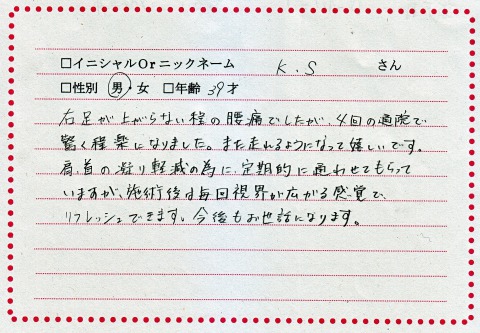 □イニシャルOrニックネーム K.S さん
□性別 男・女 □年齢 39才
右足が上がらない程の腰痛でしたが、4回の通院で
驚く程楽になりました。また走れるようになって嬉しいです。
肩、首の凝り軽減の為に、定期的に通わせてもらって
いますが、施術後は毎回視界が広がる感覚で、
リフレッシュできます。今後もお世話になります。